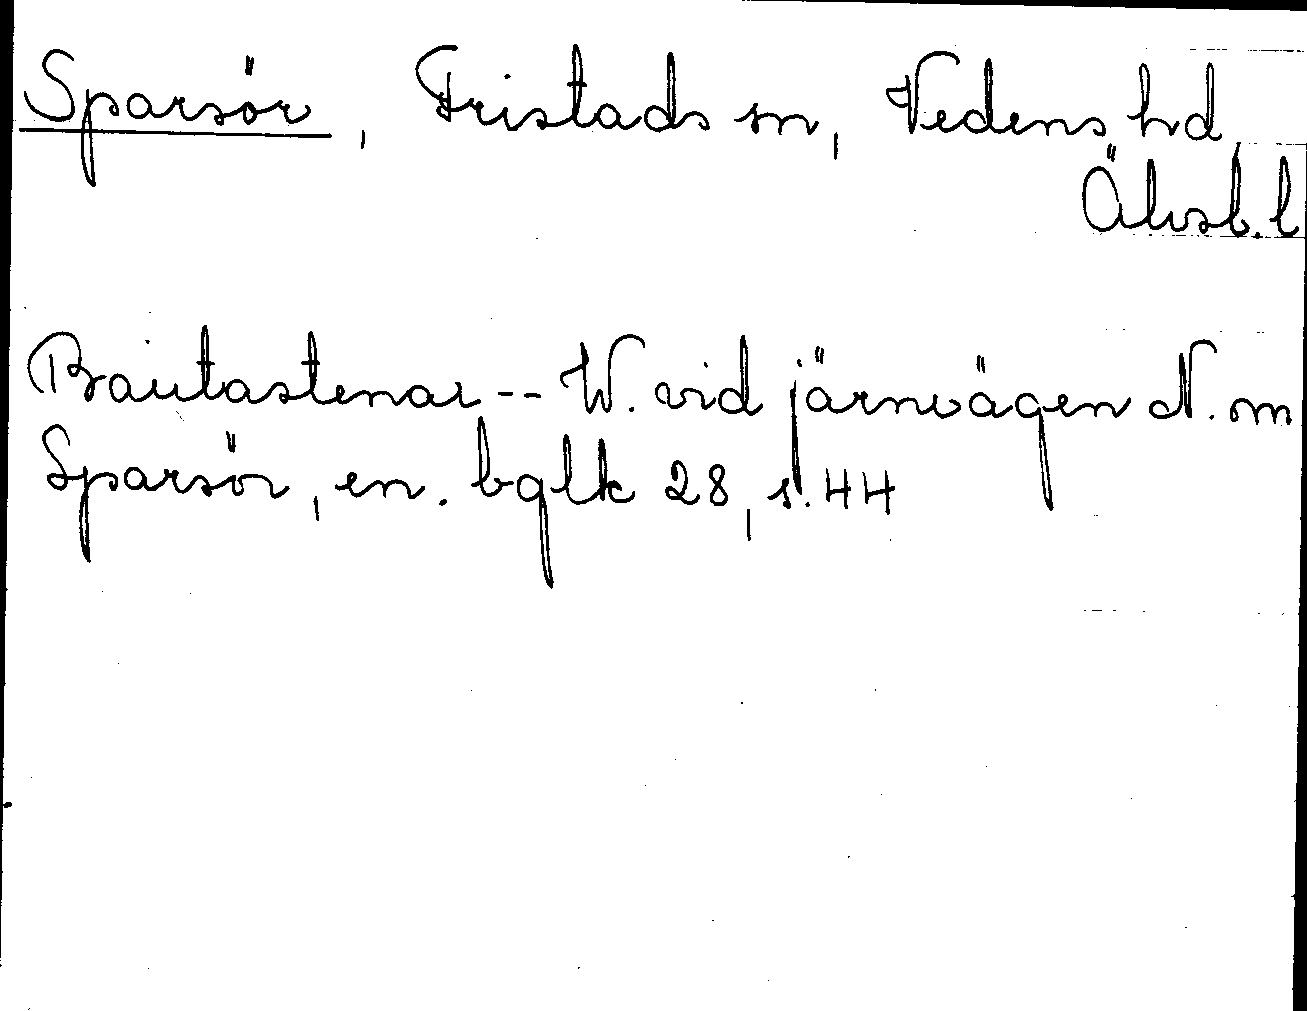 Sparsör, Fristads sn, Vedens hd,
Älvsb. l
Bautastenar -- W. vid järnvägen N. om
Sparsör, en. bglk 28, s. 44